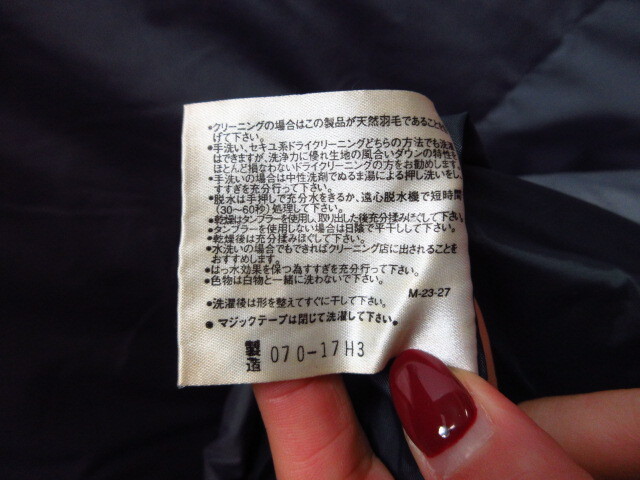 ●クリーニングの場合はこの製品が天然羽毛であることを
げて下さい。
●手洗い、セキユ系ドライクリーニングどちらの方法でも洗濯
はできますが、洗浄力に優れ生地の風合いダウンの特性を
ほとんど損なわないドライクリーニングの方をお勧めします。
●手洗いの場合は中性洗剤でぬるま湯による押し洗いをし、
すすぎを充分行って下さい。
●脱水は手押しで充分水をきるか、遠心脱水機で短時間
(30〜60秒)処理して下さい。
●乾燥はタンブラーを使用し、取り出した後充分揉みほぐして下さい。
●タンブラーを使用しない場合は日陰で平干しして下さい。
●乾燥後は充分揉みほぐして下さい。
●水洗いの場合でもできればクリーニング店に出されることを
おすすめします。
●はっ水効果を保つ為すすぎを充分行って下さい。
●色物は白物と一緒に洗わないで下さい。
M-23-27
●洗濯後は形を整えてすぐに干して下さい。
●マジックテープは閉じて洗濯して下さい。
製造 070-17H3